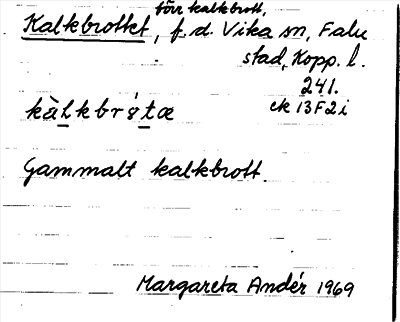 förr kalkbrott,
Kalkbrottet, f.d. Vika sn, Falu
stad, Kopp. l.
241.
ek 13F2i
kàlkbrótæ
Gammalt kalkbrott.
Margareta Andér 1969